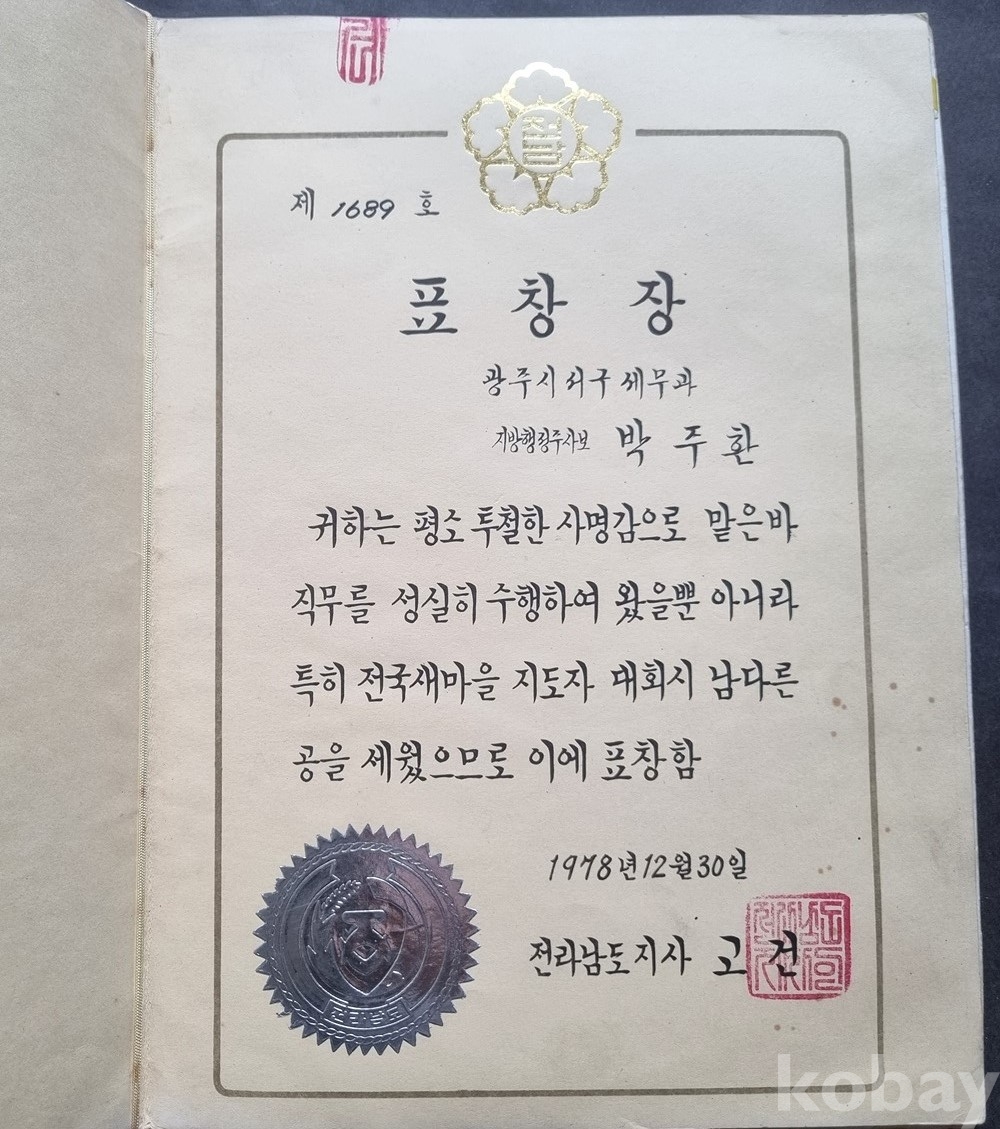 전남
제 1689 호
표 창 장
광주시 서구 세무과
지방행정주사보 박 주 환
귀하는 평소 투철한 사명감으로 맡은바
직무를 성실히 수행하여 왔을뿐 아니라
특히 전국새마을 지도자 대회시 남다른
공을 세웠으므로 이에 표창함
1978년12월30일
전라남도지사 고 건
전라남도
kobay